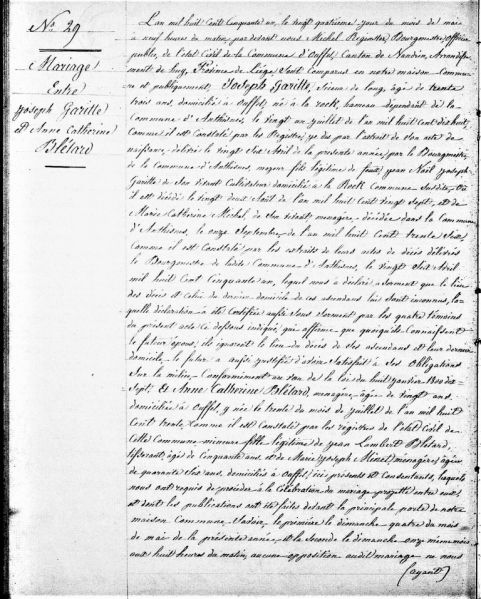 N.º 29
Mariage
Entre
Joseph Garitte
et Anne Catherine
Blétard
L'an mil huit Cent Cinquante un, le vingt quatrième jour du mois de mai
à neuf heures du matin, par devant nous Michel Bourgmestre, Officier
public, de l'état Civil de la Commune d'Ouffet, Canton de Nandrin, Arrondisse-
ment de huy, Province de Liége Sont Comparus en notre maison Commu-
ne et publiquement, Joseph Garitte, Scieur de long, âgé de trente
trois ans, domicilié à Ouffet, né à la rock, hameau dépendant de la
Commune d'Anthisnes, le vingt un juillet de l'an mil huit Cent dix huit
Comme il est Constaté par les Registres, vu par l'extrait de son acte de
naissance, délivré le vingt Six Avril de la présente année, par le Bourgmestre
de la Commune d'Anthisnes, majeur, fils légitime de feux, jean Noël joseph
Garitte de Son vivant Cultivateur domicilié à la Rock Commune Susdite, où
il est décédé le vingt deux Août de l'an mil huit Cent vingt Sept, et de
Marie Catherine Michel, de Son vivant ménagère, décédée dans la Commune
d'Anthisnes, le onze Septembre, de l'an mil huit Cent trente Six
Comme il est Constaté par les extraits de leurs actes de décès délivrés
le Bourgmestre de ladite Commune d'Anthisnes, le vingt Six Avril
mil huit Cent Cinquante un, lequel nous à déclaré à Serment que le lieu
des décès et Celui du dernier domicile de ces ascendans lui Sont inconnus, la-
quelle déclaration a été Certifiée aussi Sous Serment par les quatre témoins
du présent acte Ci dessous indiqué, qui affirme que quoiqu'ils Connaissent
le futur époux, ils ignorent le lieu du décès de Ses ascendans et leur dernier
domicile, le futur a aussi justifié d'avoir Satisfait à Ses Obligations
Sur la milice, Conformément au vœu de la loi du huit janvier 1800 dix
Sept, Et Anne Catherine Blétard, ménagère, âgée de vingt ans,
domiciliée à Ouffet, y née le trente du mois de juillet de l'an mil huit
Cent trente, Comme il est Constaté par les registres de l'état Civil de
Cette Commune mineure fille légitime de jean Lambert Blétard,
tisserant, âgé de Cinquante ans, et de Marie joseph ménagère, âgée
de quarante Six ans, domiciliés à Ouffet, ici présents et Consentants, lesquels
nous ont requis de procéder à la Célébration du mariage projetté entre eux,
et dont les publications ont été faites devant la principale porte de notre
maison Commune, Savoir, la première le dimanche quatre du mois
de mai de la présente année, et la Seconde le dimanche onze même mois
aux huit heures du matin, aucune opposition audit mariage ne nous
(ayant)